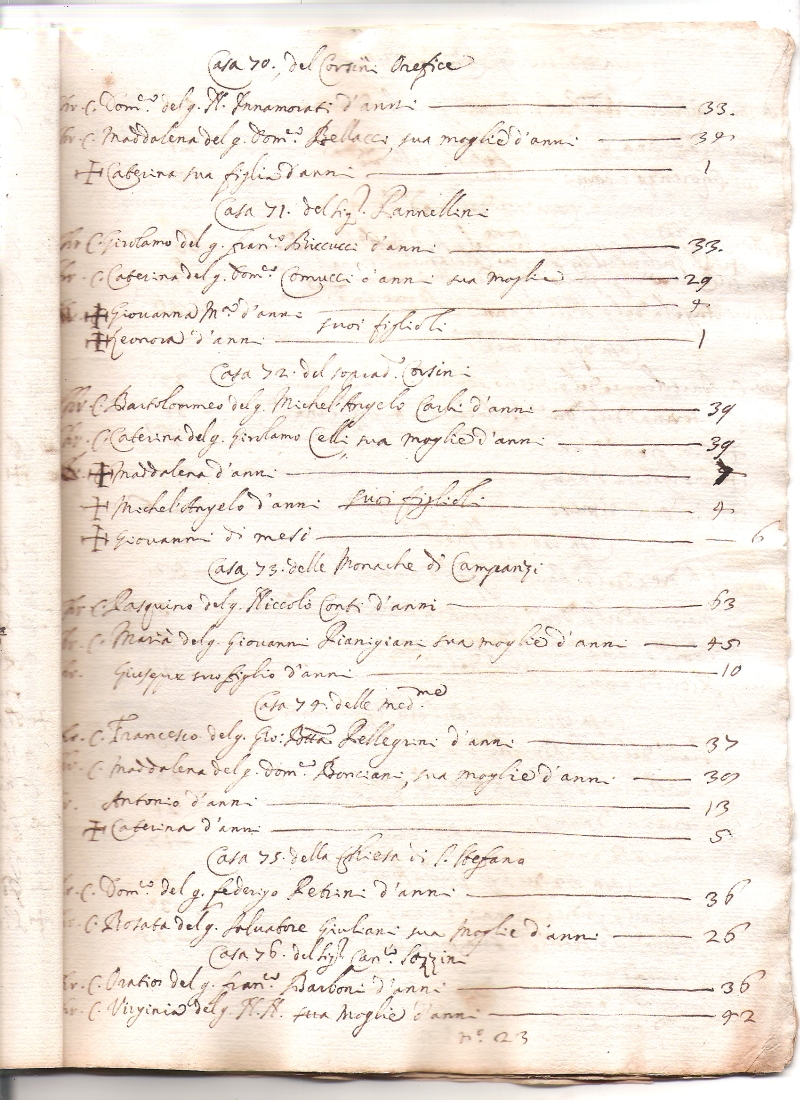 Casa 70. del Corsini Orefice
C. Dom.co del q. N. Innamorati d'anni 33.
C. Maddalena del q. Dom.co Bellacci, sua moglie d'anni 39
Caterina sua figlia d'anni 1
Casa 71. del Sig.r Pannellini
C. Girolamo del q. Fran.co Briccucci d'anni 33.
C. Caterina del q. Dom.co Comucci d'anni sua Moglie 29
Giovanna M.a d'anni 4
suoi figlioli
Leonora d'anni 1
Casa 72. del soprad.o Corsini
C. Bartolommeo del q. Michel'Angelo Carli d'anni 39
C. Caterina del q. Girolamo Celli, sua moglie d'anni 39
Maddalena d'anni
Michel'Angelo d'anni suoi figlioli 4
Giovanni di mesi 6
Casa 73. delle Monache di Campansi
C. Pasquino del q. Niccolò Conti d'anni 63
C. Maria del q. Giovanni Pianigiani, sua moglie d'anni 45
Giuseppe suo figlio d'anni 10
Casa 74. delle med.me
C. Francesco del q. Gio: Batta Pellegrini d'anni 37
C. Maddalena del q. Dom.co Bonciani, sua moglie d'anni 39
Antonio d'anni 13
Caterina d'anni 5
Casa 75. della Chiesa di S. Stefano
C. Dom.co del q. Federigo Petrini d'anni 36
C. Rosata del q. Salvatore Giuliani sua Moglie d'anni 26
Casa 76. del Sig.r Can.co Sozzini
C. Oratio del q. Fran.co Barboni d'anni 36
C. Virginia del q. N. N. sua Moglie d'anni 42
n.o 23